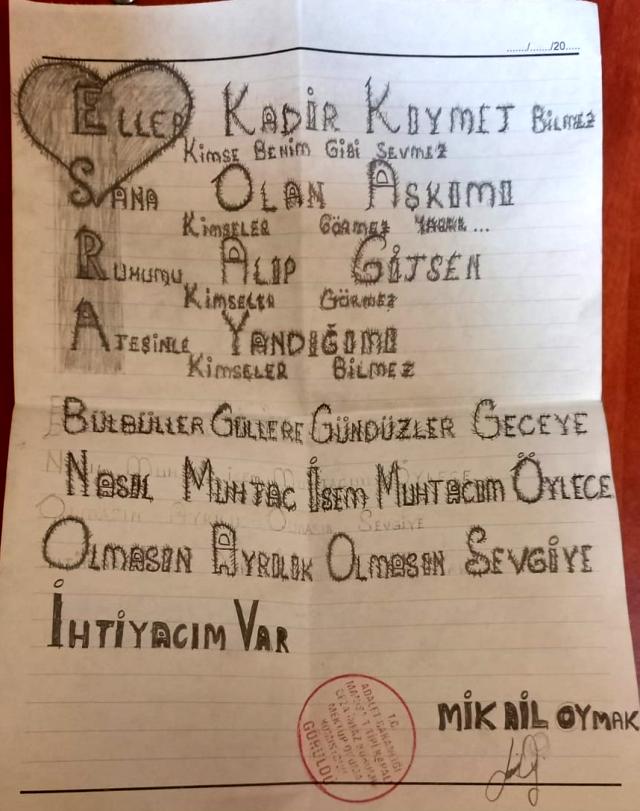 ....../....../20.....
ELLER KADİR KIYMET BİLMEZ
KİMSE BENİM GİBİ SEVMEZ
SANA OLAN AŞKIMI
KİMSELER GÖRMEZ ...
RUHUMU ALIP GİTSEN
KİMSELER GÖRMEZ
ATEŞİNLE YANDIĞIMI
KİMSELER BİLMEZ
BÜLBÜLLER GÜLLERE GÜNDÜZLER GECEYE
NASIL MUHTAÇ İSEM MUHTACIM ÖYLECE
OLMASIN AYRILIK OLMASIN SEVGİYE
İHTİYACIM VAR
MİKAİL OYMAK
T.C.
ADALET BAKANLIĞI
TİPİ KAPALI
CEZA İNFAZ KURUMU
MEKTUP OKUMA
KOMİSYONU
GÖRÜLDÜ